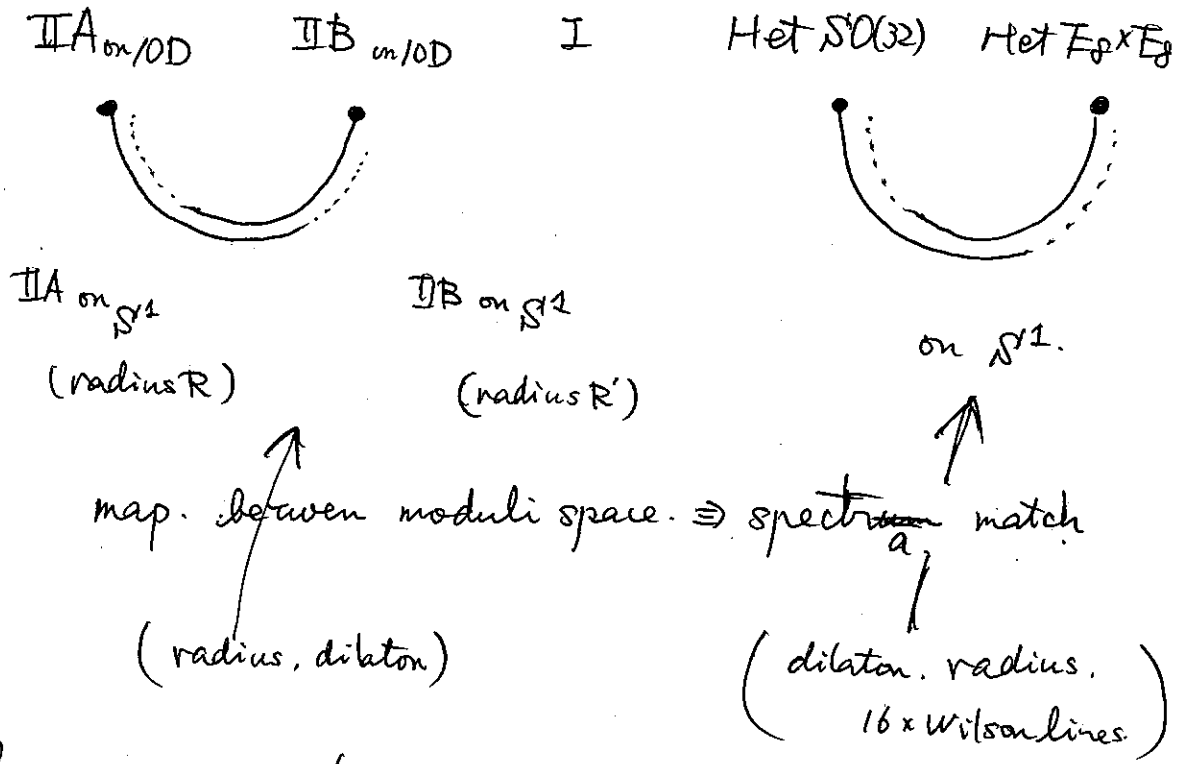 IIA on 10D IIB on 10D I Het SO(32) Het E8×E8
IIA on S1 IIB on S1
on S1.
(radius R) (radius R')
map. between moduli space. ⇒ spectra match
(radius, dilaton)
(dilaton. radius.
16 × Wilson lines.)